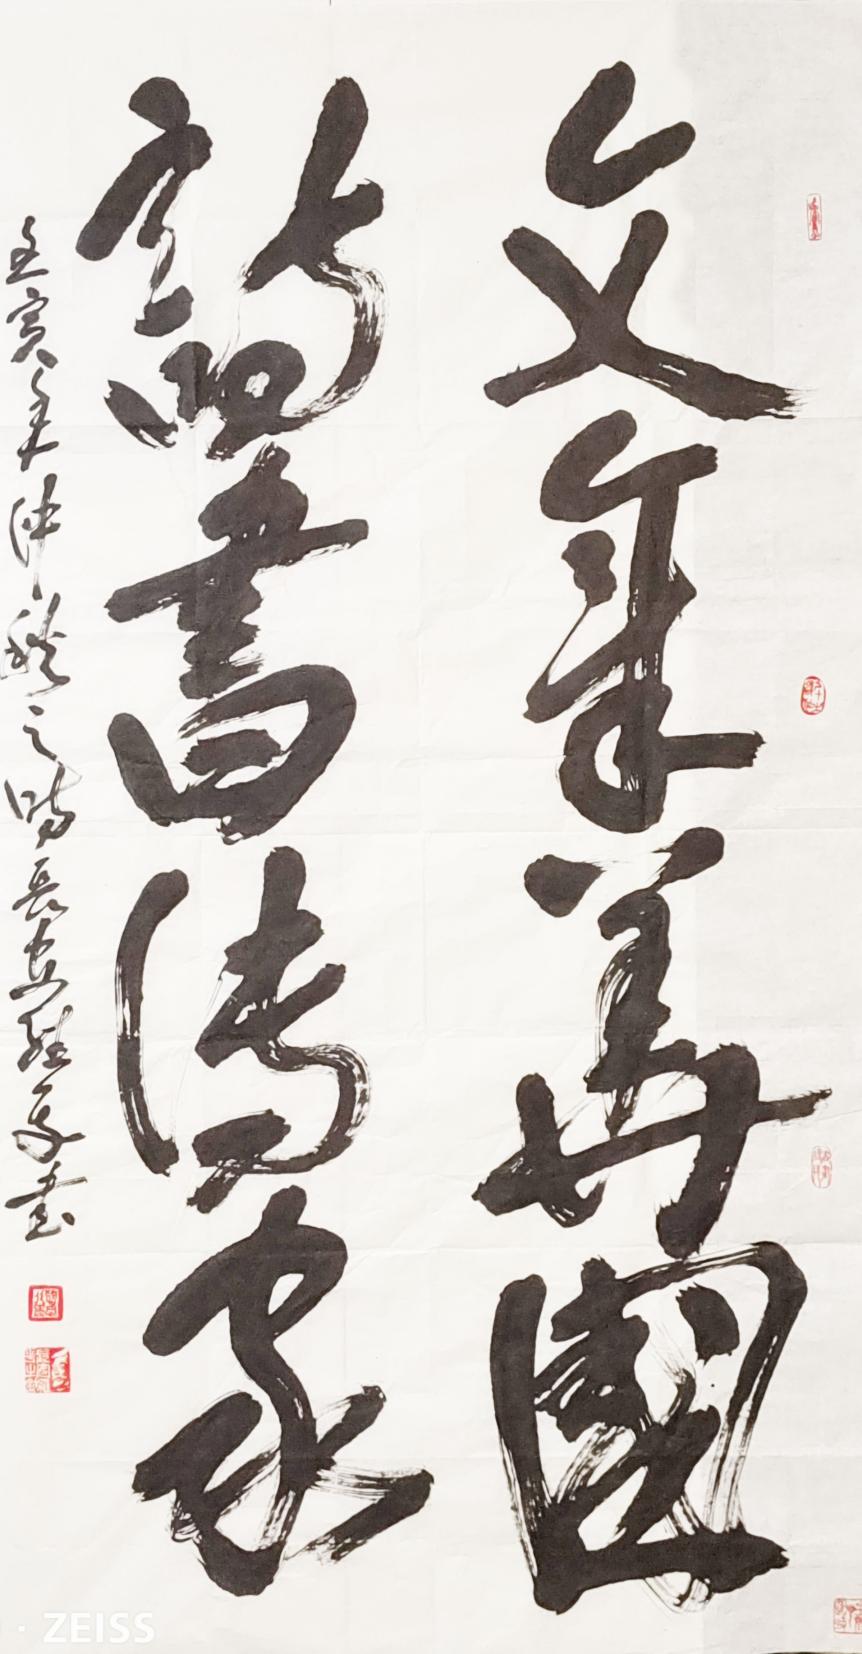 文章華國
詩書傳家
壬寅年仲秋之時長安
ZEISS